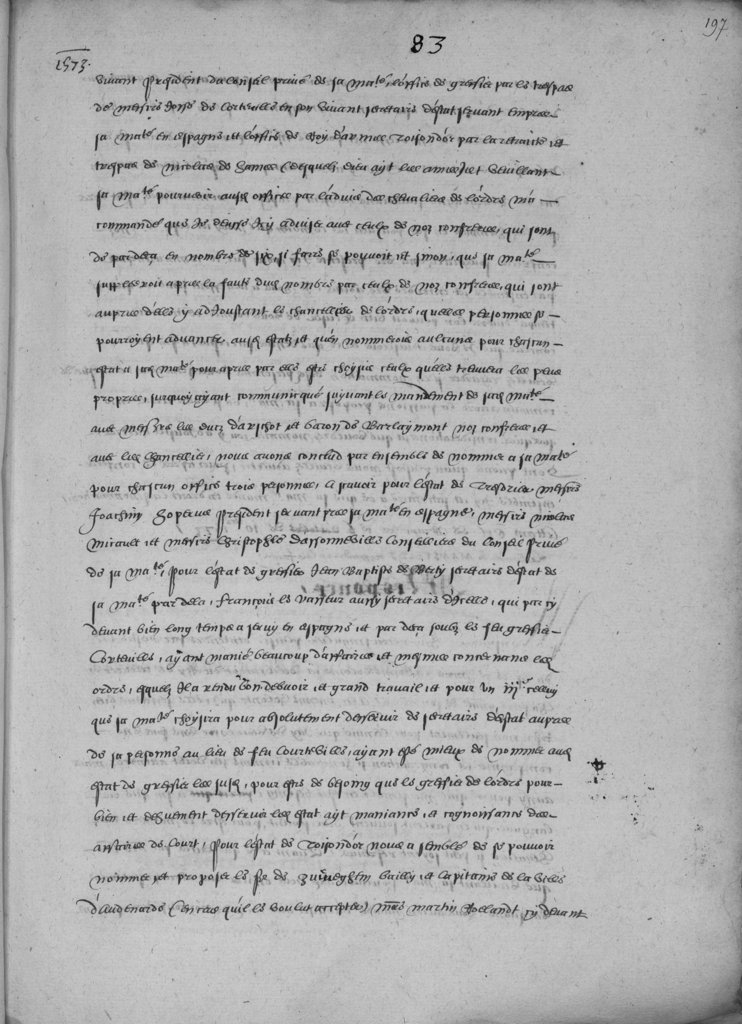 83
197
1573.
vivant President du Conseil privé de sa Maté, l'office de greffier par le trespas
de messire Josse de Corteville en son vivant secretaire d'estat servant empres
sa Maté en espagne et l'office de Roy d'armes Toison d'or par la retraicte et
trespas de nicolas de hames (desquelz dieu ayt les ames) et veuillant
sa Maté pourveoir ausd offices par l'advis des chevaliers de l'ordre m'a
commandé que Je deusse J'y adviser avec ceulx de noz confreres, qui sont
de pardeça en nombre de six, si faire se povoit et sinon, que sa Maté
suppleeroit apres la faulte dud nombre par ceulx de noz confreres, qui sont
aupres d'elle y adJoustant le chancellier de l'ordre, quelles personnes se
pourroyent advancer ausd estatz et qu'en nommerois aulcuns pour chascun
estat a sad Maté pour apres par elle estre choysie ceulx qu'elle trouvera les plus
propres, surquoy ayant communicqué suyvant le mandement de sad Maté
avec messrs les ducz d'arschot et baron de Barlaymont noz confreres et
avec led Chancellier, nous avons conclud par ensemble de nommer a sa Maté
pour chascun office trois personnes, a scavoir pour l'estat de Tresorier, messire
Joachim hoperus President servant pres sa Maté en espaigne, messire nicolas
micault et messire Christophle d'assonleville Conseilliers du Conseil Privé
de sa Maté, Pour l'estat de greffier Jean Baptiste de Berty secretaire d'estat de
sa Maté par dela, François le Vasseur aussy secretaire d'Icelle, qui par cy
devant bien long temps a servy en espagne et par deça soubz le feu greffier
Corteville, ayant manié beaucoup d'affaires et mesmes concernans led
ordre, esquelz Il a rendu bon debvoir et grand travail et pour un iije celluy
que sa Maté choysira pour absolutement desservir de secretaire d'estat aupres
de sa personne au lieu de feu Courteville, ayant esté mieux de nommer aud
estat de greffier les susd, pour estre de besoing que le greffier de l'ordre pour
bien et deheuement desservir led estat ayt maniance et cognoissance des
affaires de Court, Pour l'estat de Toison d'or nous a semblé de se povoir
nommer et proposer le Sr de zuineghem bailly et Capitaine de la ville
d'Audenarde (en cas qu'il le voulut accepter) maistre martin Roelandt cy devant